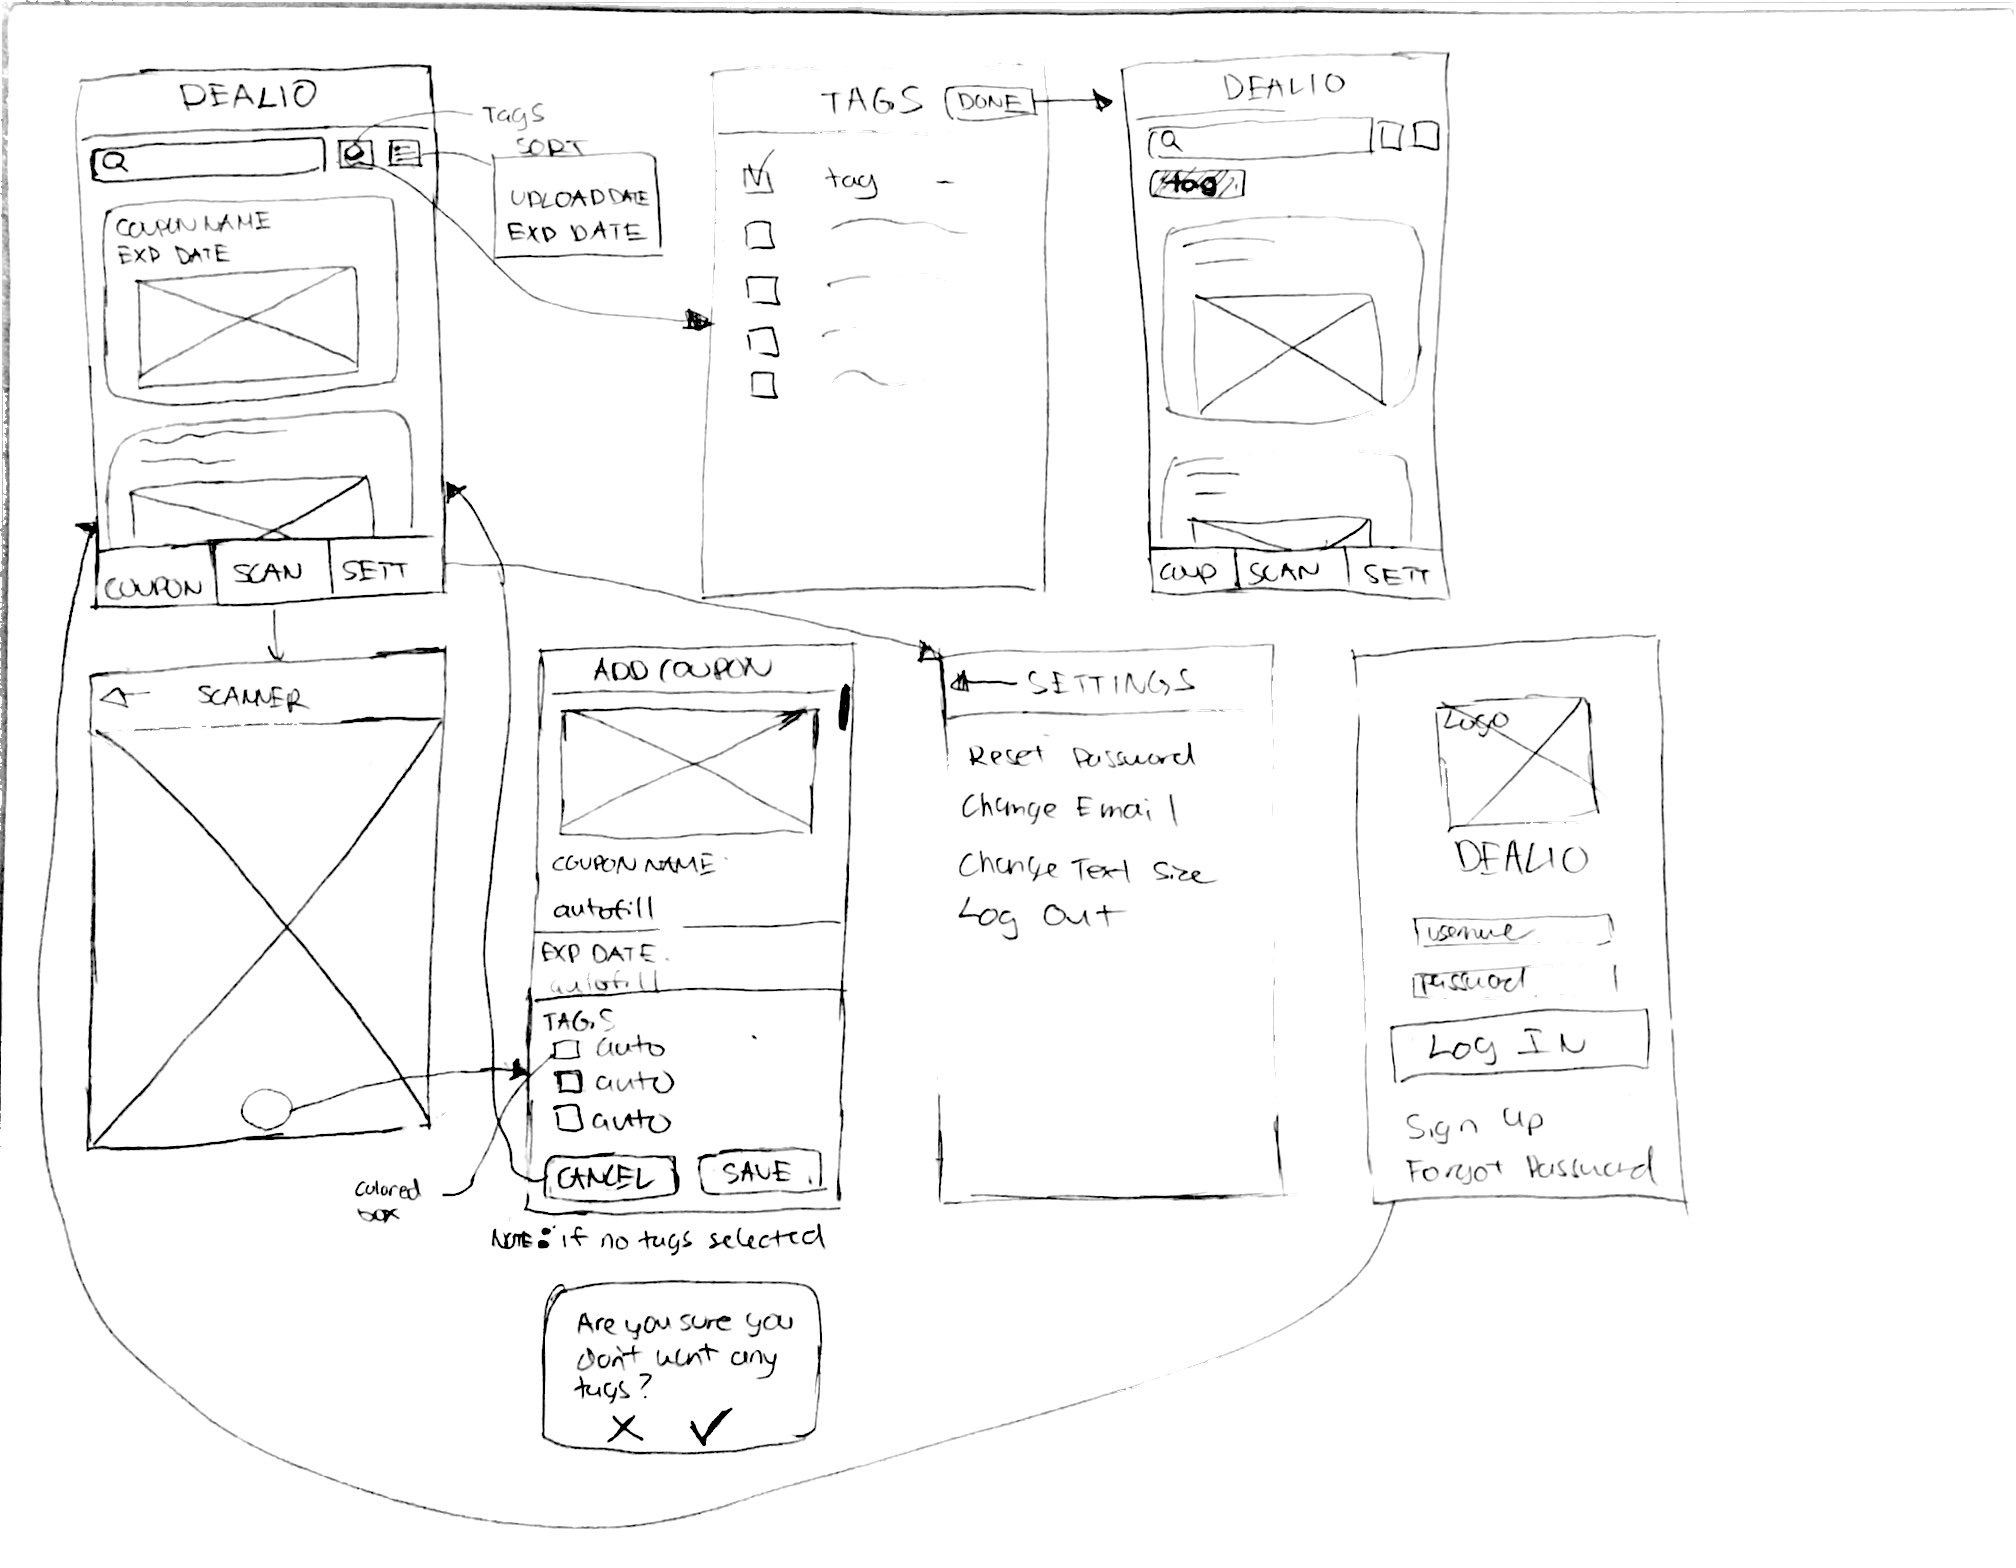 DEALIO
Tags
SORT
UPLOAD DATE
EXP DATE
COUPON NAME
EXP DATE
COUPON
SCAN
SETT
TAGS
DONE
tag
DEALIO
tag
COUP
SCAN
SETT
SCANNER
ADD COUPON
COUPON NAME
autofill
EXP DATE
autofill
TAGS
auto
auto
auto
CANCEL
SAVE
Colored
box
NOTE: if no tags selected
Are you sure you
don't want any
tags?
SETTINGS
Reset Password
Change Email
Change Text Size
Log Out
Logo
DEALIO
password
LOG IN
Sign Up
Forgot Password